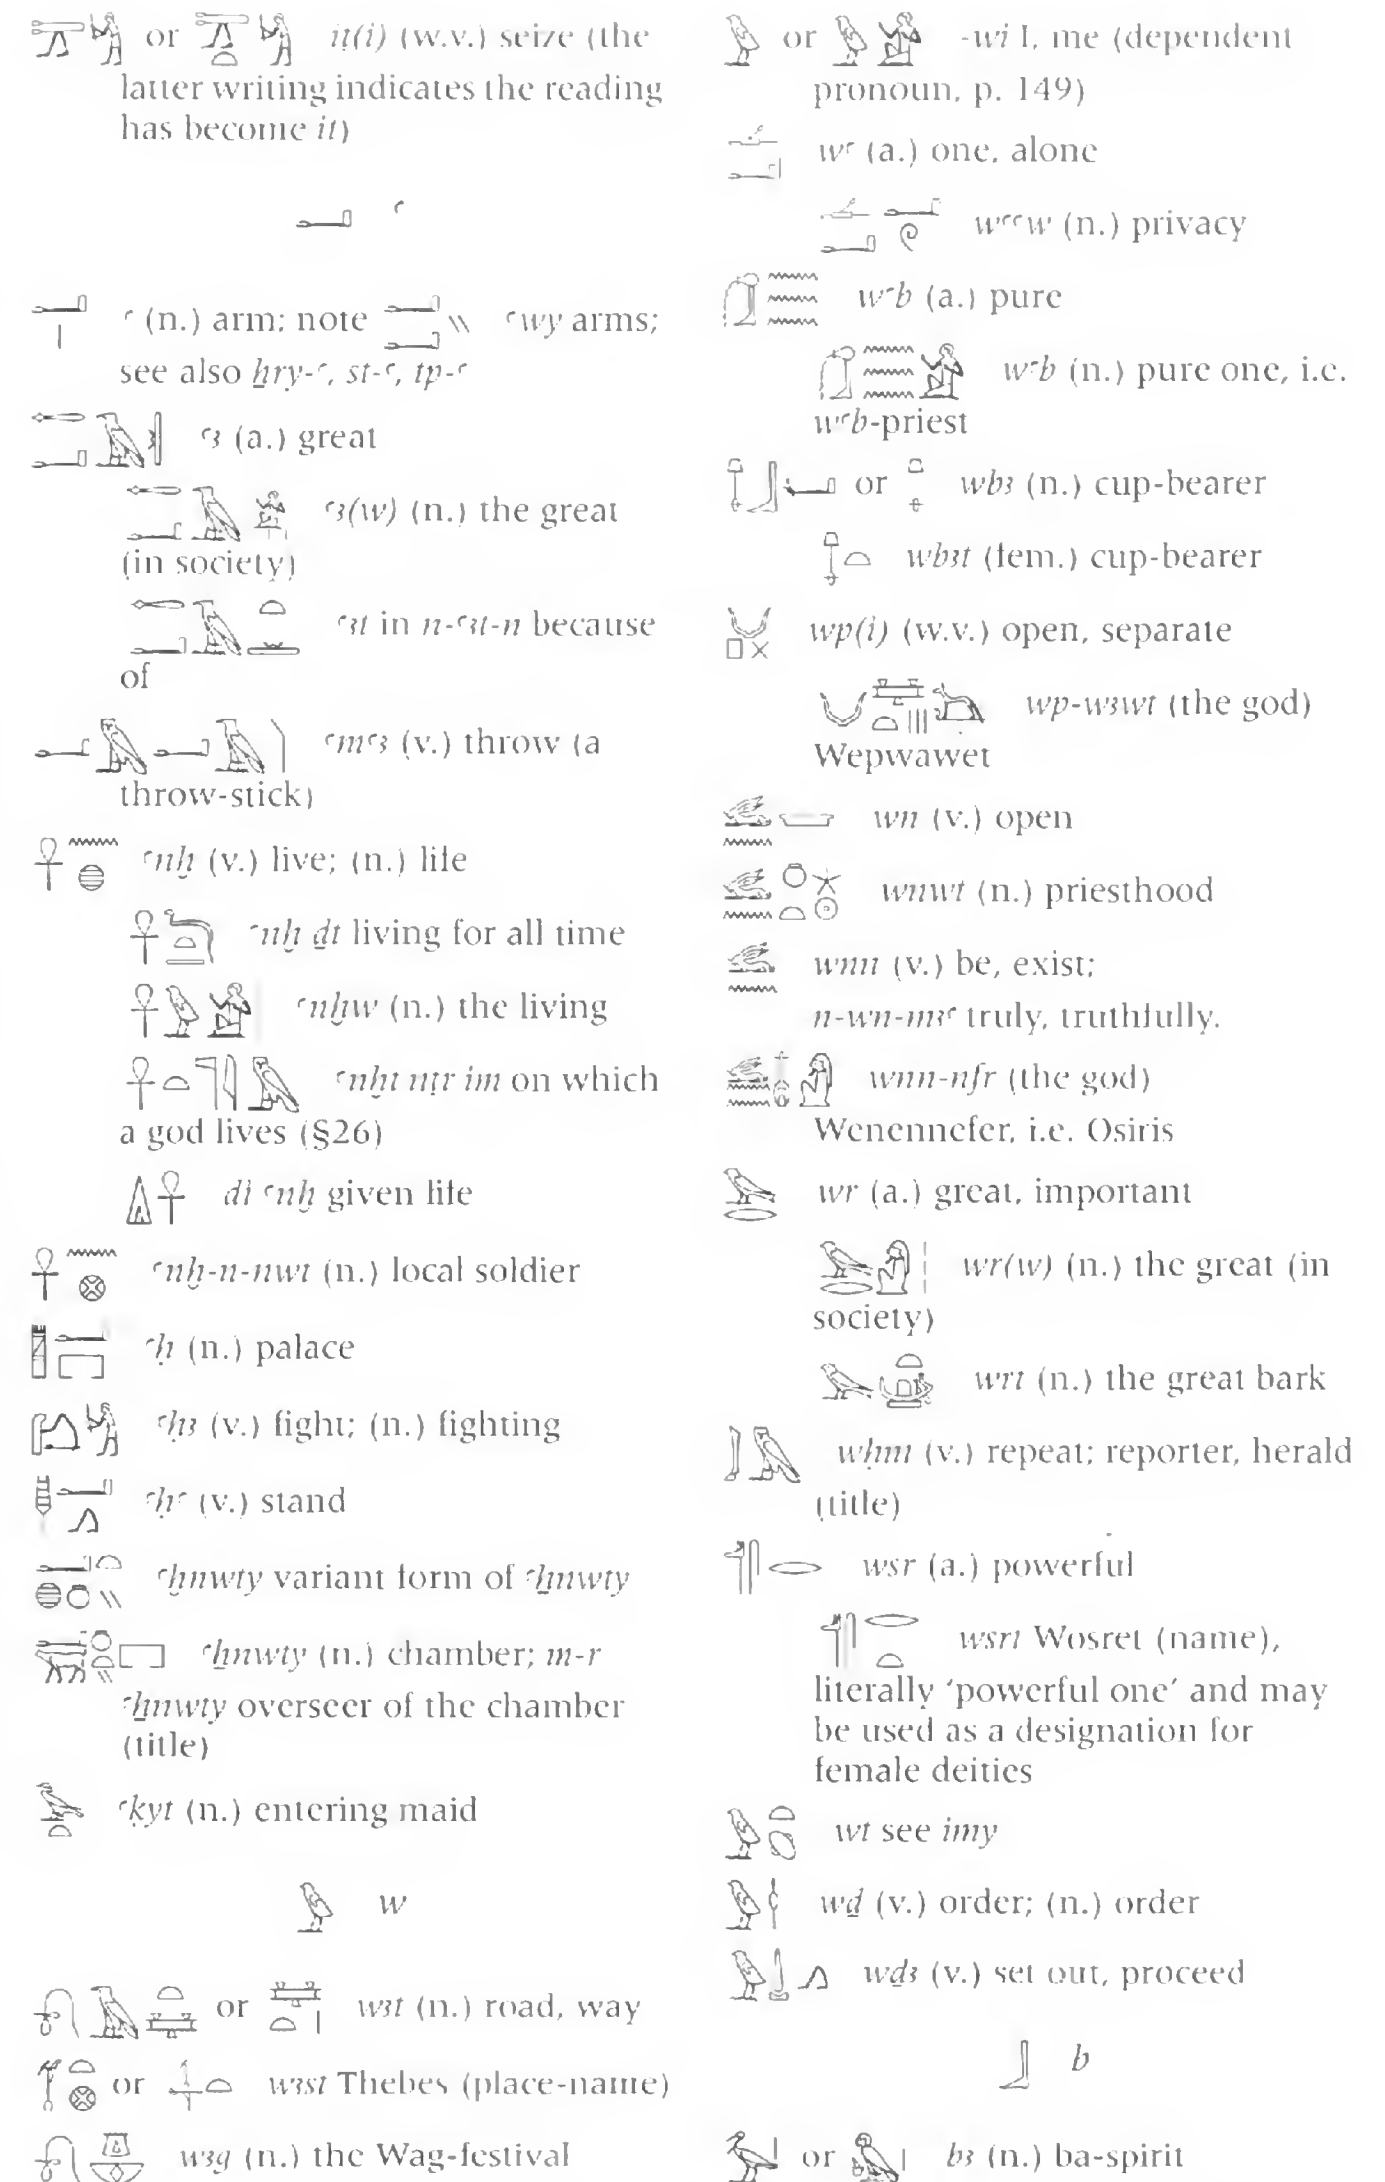 𓍿𓂻𓀜 or 𓍿𓂻𓏏𓀜 iṯ(i) (w.v.) seize (the
latter writing indicates the reading
has become it)
𓂝 ꜥ
𓂝𓏤 ꜥ (n.) arm; note 𓂝𓂝𓏭 ꜥwy arms;
see also ẖry-ꜥ, st-ꜥ, tp-ꜥ
ꜥꜣ (a.) great
ꜥꜣ(w) (n.) the great
(in society)
ꜥꜣt in n-ꜥꜣt-n because
of
ꜥmꜥꜣ (v.) throw (a
throw-stick)
𓋹𓈖𓐍 ꜥnḫ (v.) live; (n.) life
ꜥnḫ ḏt living for all time
𓋹𓅱𓀀 ꜥnḫw (n.) the living
𓋹𓏏𓊹𓇋𓅓 ꜥnḫt nṯr im on which
a god lives (§26)
𓏙𓋹 di ꜥnḫ given life
𓋹𓈖𓊖 ꜥnḫ-n-nwt (n.) local soldier
ꜥḥ (n.) palace
ꜥḥꜣ (v.) fight; (n.) fighting
𓊢𓂝𓂻 ꜥḥꜥ (v.) stand
ꜥḫnwty variant form of ꜥẖnwty
ꜥẖnwty (n.) chamber; m-r
ꜥẖnwty overseer of the chamber
(title)
ꜥḳyt (n.) entering maid
𓅱 w
or wꜣt (n.) road, way
or wꜣst Thebes (place-name)
wꜣg (n.) the Wag-festival
𓅱 or 𓅱𓀀 -wi I, me (dependent
pronoun, p. 149)
wꜥ (a.) one, alone
wꜥꜥw (n.) privacy
wꜥb (a.) pure
wꜥb (n.) pure one, i.e.
wꜥb-priest
or wbꜣ (n.) cup-bearer
wbꜣt (fem.) cup-bearer
wp(i) (w.v.) open, separate
wp-wꜣwt (the god)
Wepwawet
wn (v.) open
wnwt (n.) priesthood
𓃹𓈖 wnn (v.) be, exist;
n-wn-mꜣꜥ truly, truthfully.
wnn-nfr (the god)
Wenennefer, i.e. Osiris
𓅨𓂋 wr (a.) great, important
wr(w) (n.) the great (in
society)
wrt (n.) the great bark
𓄙𓅓 wḥm (v.) repeat; reporter, herald
(title)
𓄊𓋴𓂋 wsr (a.) powerful
𓄊𓋴𓂋𓏏 wsrt Wosret (name),
literally ‘powerful one’ and may
be used as a designation for
female deities
wt see imy
𓅱𓎗 wḏ (v.) order; (n.) order
𓅱𓍑𓂻 wḏꜣ (v.) set out, proceed
𓃀 b
or bꜣ (n.) ba-spirit